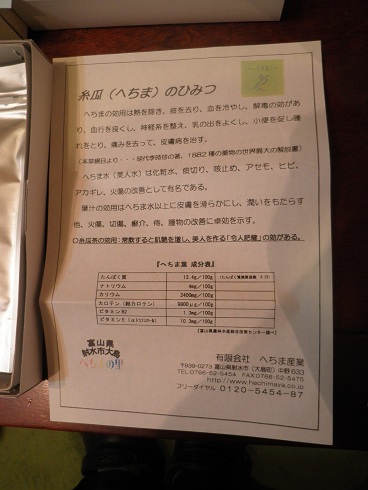 糸瓜（へちま）のひみつ
へちまの効用は熱を除き、痰を去り、血を冷やし、解毒の効があ
り、血行を良くし、神経系を整え、乳の出をよくし、小便を促し腫
れをとり、痛みを去って、皮膚病を治す。
（本草綱目より・・・明代李時珍の著、1882種の薬物の世界最大の解説書）
へちま水〔美人水〕は化粧水、痰切り、咳止め、アセモ、ヒビ、
アカギレ、火傷の改善として有名である。
葉汁の効用はへちま水以上に皮膚を滑らかにし、潤いをもたらす
他、火傷、切傷、疥癬、痔、腫物の改善に卓効を示す。
◎糸瓜茶の効用：常飲すると肌艶を増し、美人を作る「令人肥麗」の効がある。
『へちま葉 成分表』
たんぱく質 13.4g／100g
ナトリウム 4mg／100g
カリウム 2400mg／100g
カロテン（総カロテン） 9800μg／100g
ビタミンB2 1.3mg／100g
ビタミンE 10.3mg／100g
富山県
射水市大島
へちまの里
有限会社 へちま産業
〒939-0273 富山県射水市（大島町）中野633
TEL 0766-52-5454 FAX 0766-52-5475
http://www.hechimaya.co.jp
フリーダイヤル 0120-5454-87